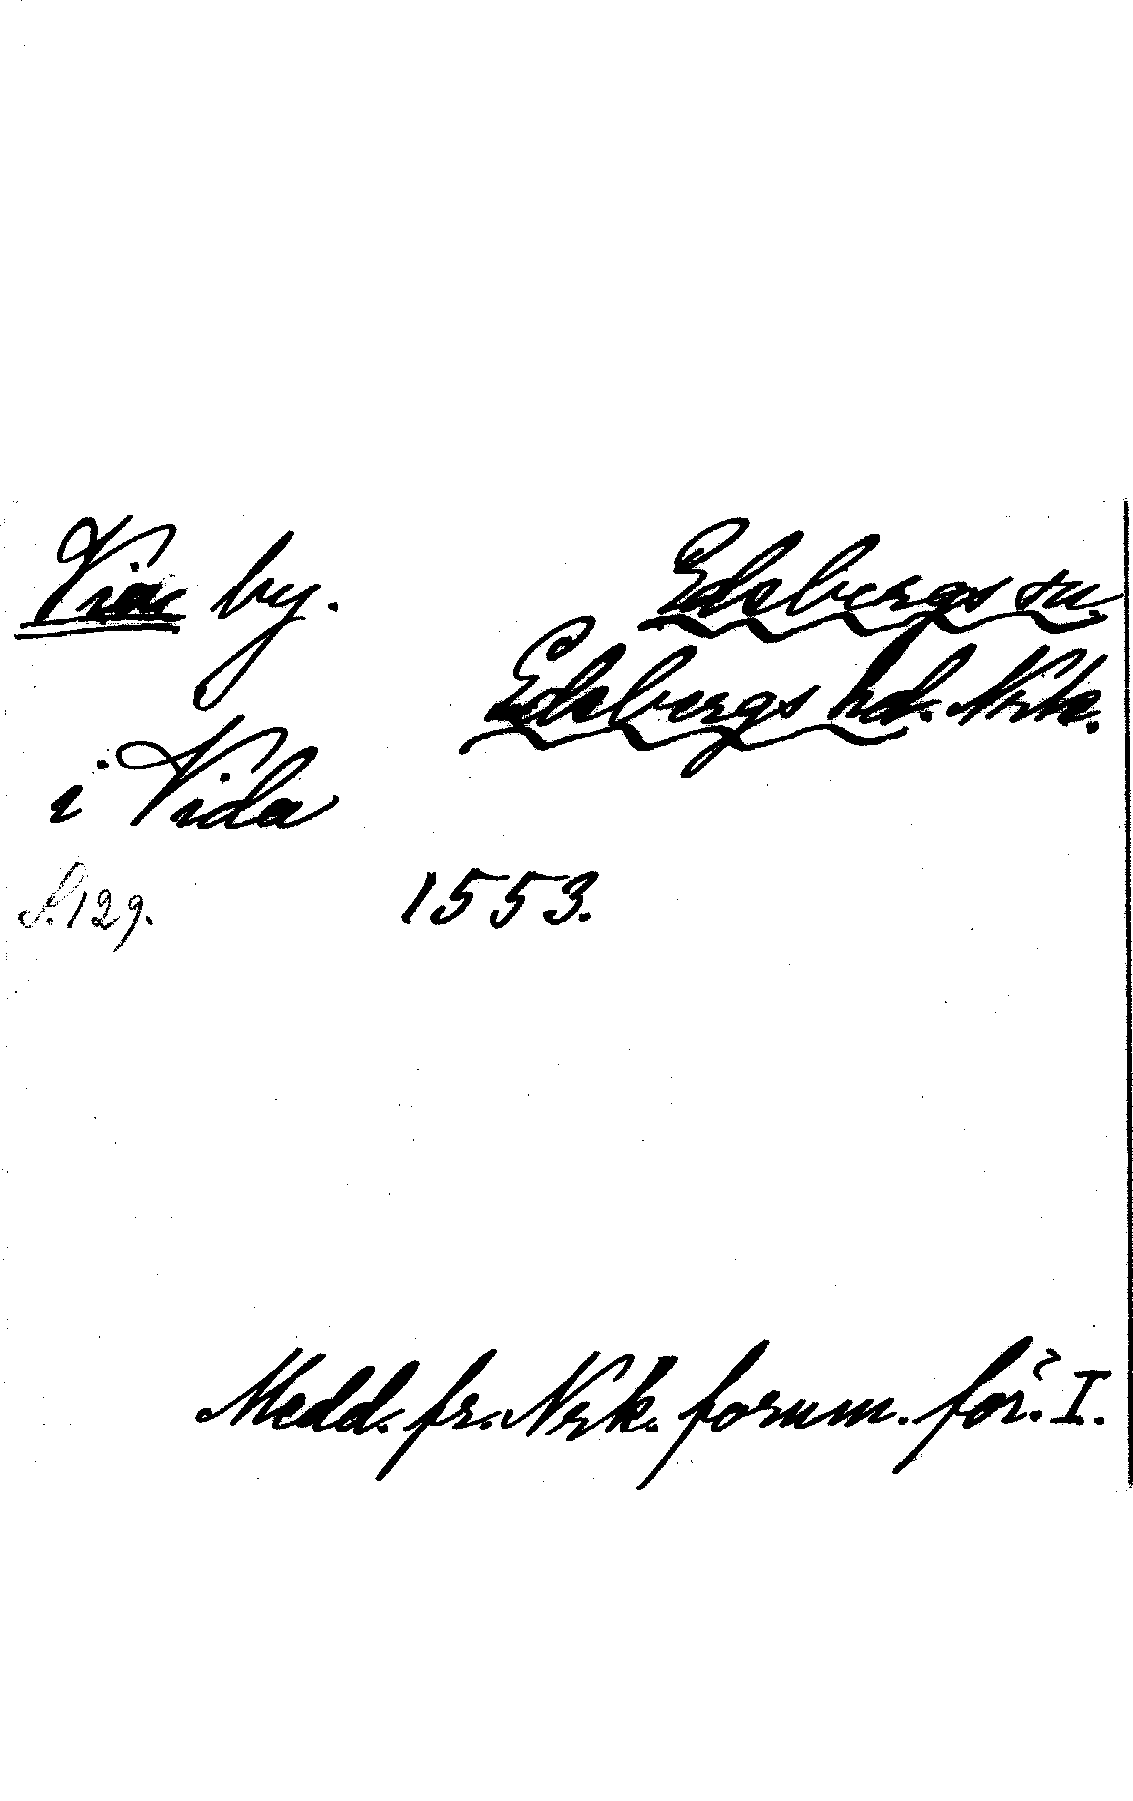 Via by.
Edsbergs sn.
Edsbergs hd. Nrke.
i Vida
S. 129.
1553.
Medd. fr. Nrk. fornm. för. I.